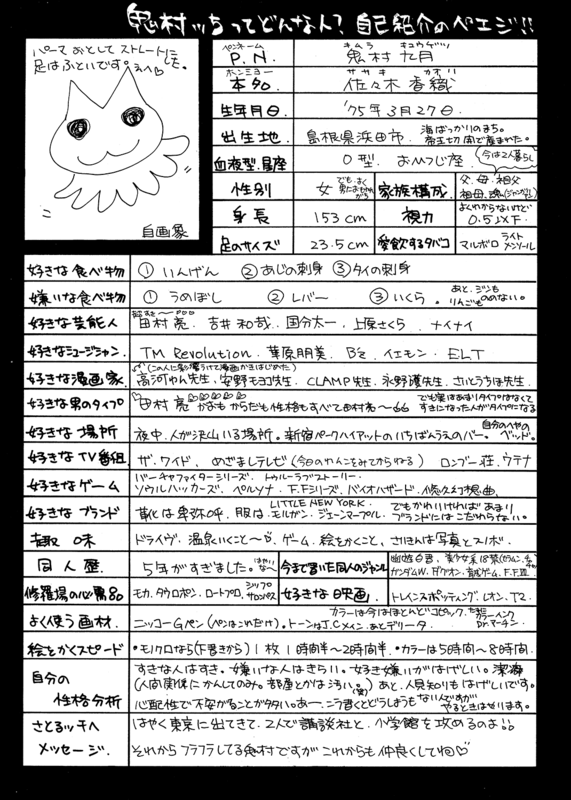 鬼村ッちってどんな人？自己紹介のペエジ!!
パーマ おとして ストレートにした。
足はふといです。えへ♡
自画象
ペンネーム
P.N.
キムラ キュウゲツ
鬼村 九月
ホンミョー
本名
ササキ カオリ
佐々木 香織
生年月日
'75年3月27日
出生地
島根県浜田市.
海ばっかりのまち。
帝王切開で産まれた。
血液型.星座
O型. おひつじ座.
今は2人暮らし
性別
女
でも、よく男にまちがわれがち
家族構成.
父.母.祖父
祖母.
身長
153cm
視力
よくわからないけど
0.5以下.
足のサイズ
23.5cm
愛飲するタバコ
マルボロ ライトメンソール
好きな食べ物
① いんげん ② あじの刺身 ③ タイの刺身
嫌いな食べ物
① うめぼし ② レバー ③ いくら.
あと、ジンもりんごものめない。
好きな芸能人
田村亮. 吉井和哉. 国分太一. 上原さくら. ナイナイ
好きなミュージシャン.
TM Revolution. 華原朋美. B'z. イエモン. ELT
好きな漫画家.
(この人に影響うけて漫画かきはじめた)
高河ゆん先生. 安野モヨコ先生. CLAMP先生. 永野護先生. さいとうちほ先生.
好きな男のタイプ
田村亮♡ かおもからだも性格もすべて田村亮〜
でも実はあまりタイプはなくて
すきになった人がタイプになる
好きな場所
夜中.人が沢山いる場所。新宿パークハイアットのいちばんうえのバー。
自分のへやのベッド。
好きなTV番組.
ザ.ワイド. めざましテレビ(今日のわんこをみてからねる) ロンブー荘.ウテナ
好きなゲーム
バーチャファイターシリーズ. トゥルーラブストーリー.
ソウルハッカーズ. ペルソナ. F.Fシリーズ. バイオハザード. 悠久幻想曲.
好きなブランド
靴は卑弥呼. 服は
LITTLE NEW YORK.
モルガン. ジェーンマープル.
でもかわいければあまり
ブランドにはこだわらない。
趣味
ドライヴ. 温泉いくこと〜♡. ゲーム. 絵をかくこと. さいきんは写真とスノボ.
同人歴.
5年がすぎました。
はやいな〜
今まで書いた同人のジャンル
幽遊白書. 美少女系18禁
ガンダムW. ダグオン. 育成ゲーム. F.F.Ⅶ.
修羅場の心の薬80
モカ. タウロポン. ロートプロ.
シップ
サロンパス
好きな映画.
トレインスポッティング. レオン. T2
よく使う画材.
ニッコーGペン(ペンはこれだけ). トーンはJ.Cメイン.あとデリータ.
カラーは今はほとんどコピック.
カラーインク
Dr.マーチン
絵をかくスピード
・モノクロなら(下書きから) 1枚 1時間半〜2時間半. ・カラーは5時間〜8時間.
自分の
性格分析
すきな人はすき。嫌いな人はきらい。好き嫌いがはげしい。潔癖
(人間関係にかんしてのみ。部屋とかは汚い。(笑)) あと、人見知りもはげしいです。
心配性で不安がることが多い。あー.こう書くとどうしようもない人ですが
やるときはやります。
さとるッチへ
メッセージ.
はやく東京に出てきて.2人で講談社と. 小学館を攻めるのよ!!
それから フラフラしてる鬼村ですが これからも仲良くしてね♡